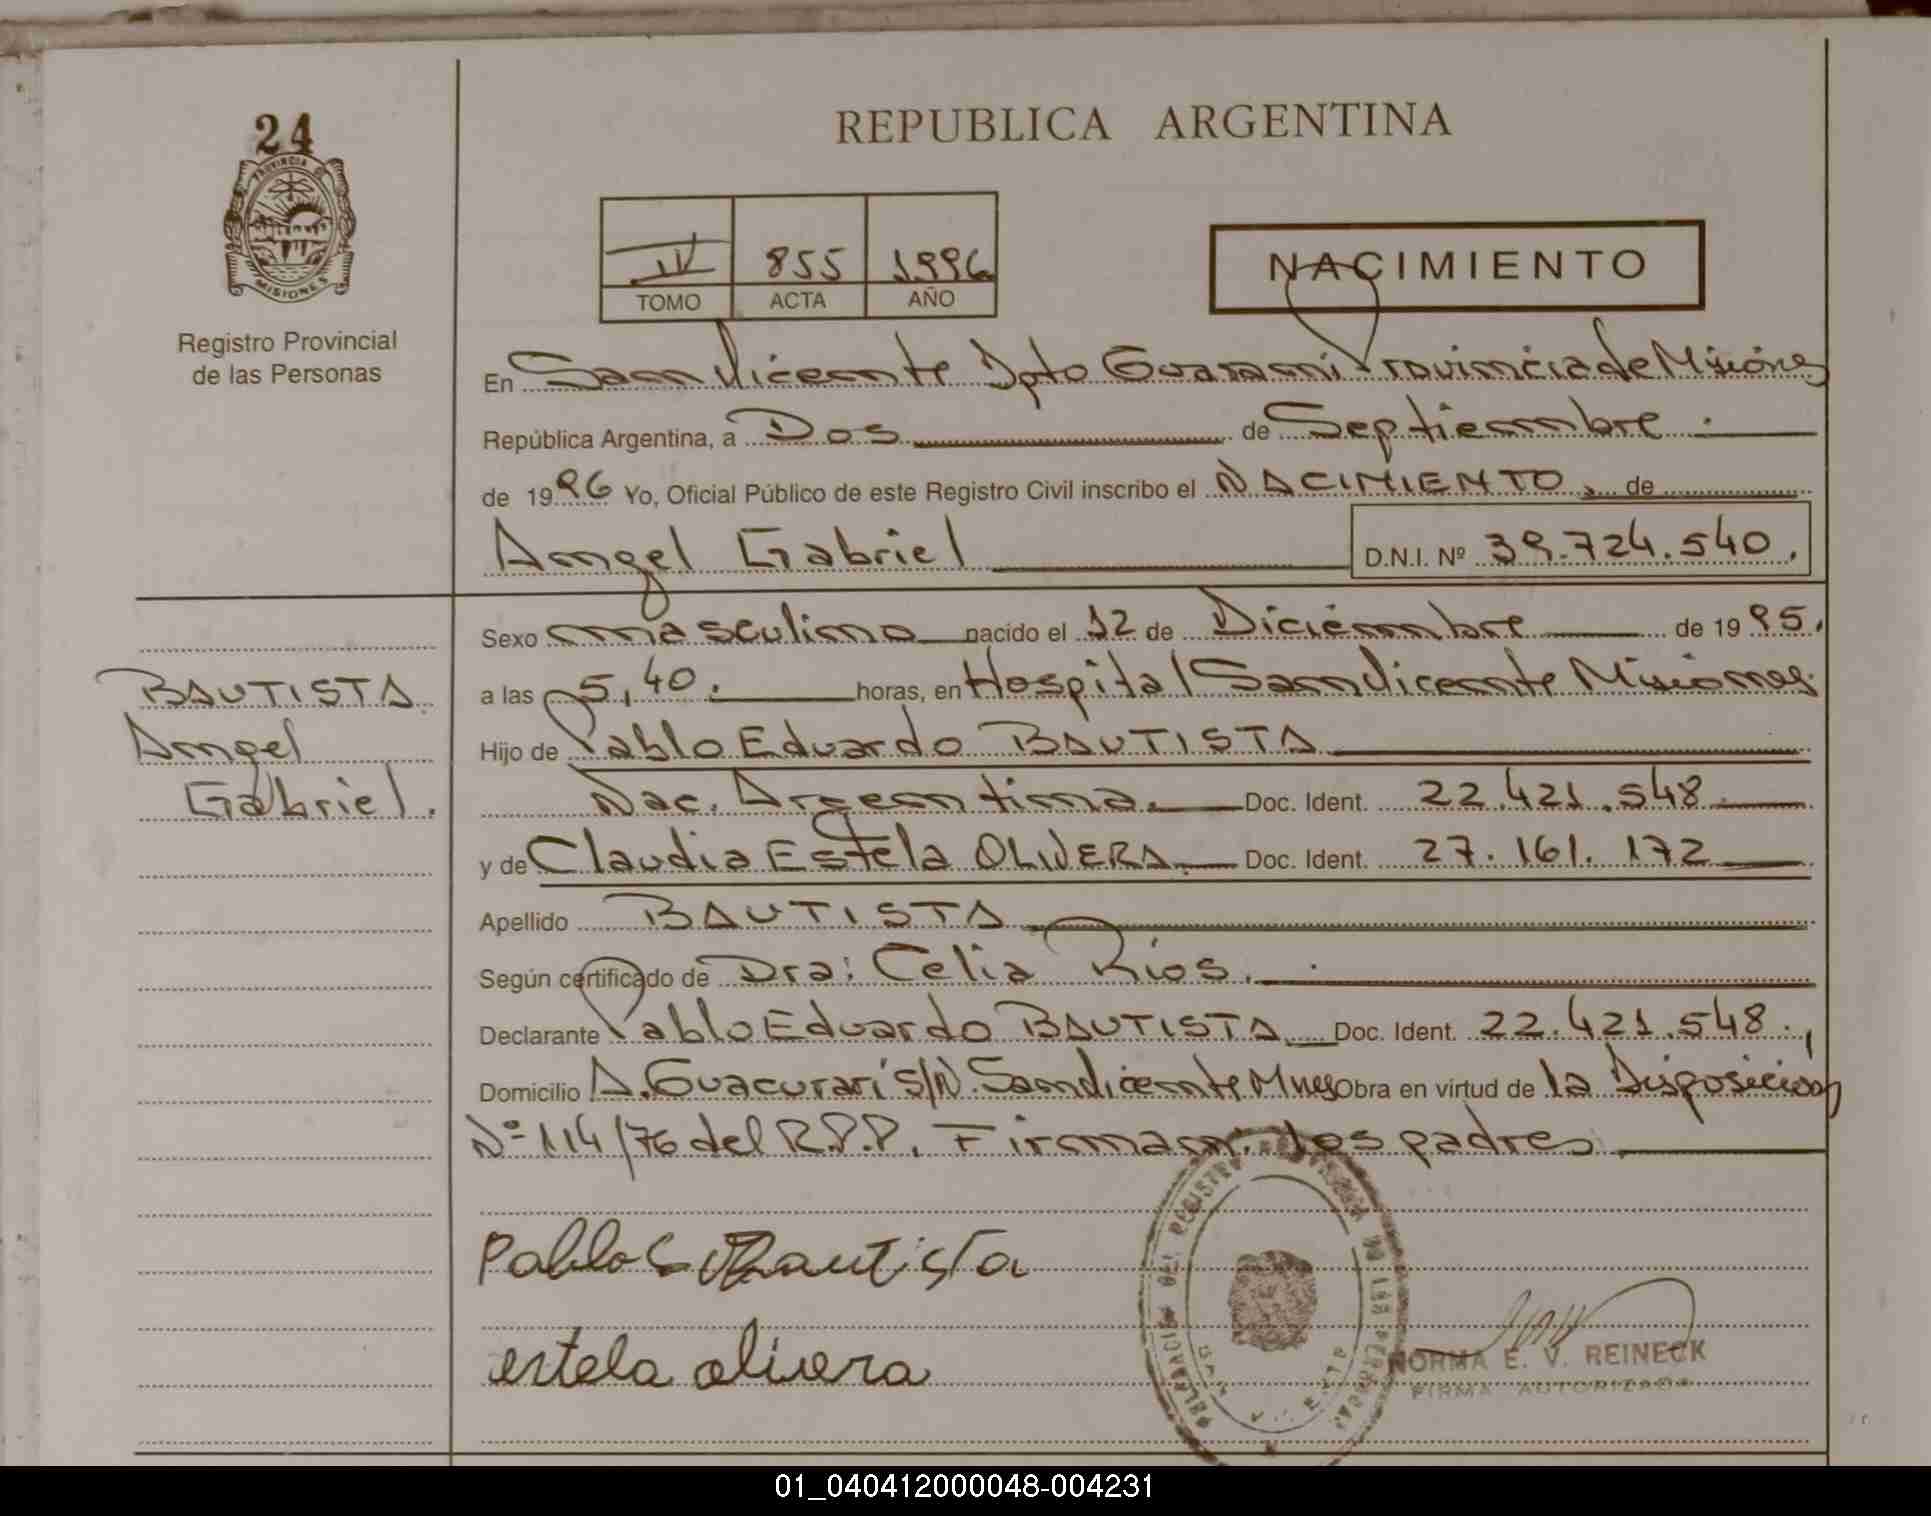 24
REPUBLICA ARGENTINA
PROVINCIA
MISIONES
Registro Provincial
de las Personas
IV 855 1996
TOMO ACTA AÑO
NACIMIENTO
En San Vicente Dpto Guaraní Provincia de Misiones
República Argentina, a Dos de Septiembre
de 1996 Yo, Oficial Público de este Registro Civil inscribo el NACIMIENTO, de
Angel Gabriel D.N.I. Nº 39.724.540.
Sexo masculino nacido el 12 de Diciembre de 1995.
BAUTISTA
Angel
Gabriel.
a las 5,40. horas, en Hospital San Vicente Misiones
Hijo de Pablo Eduardo BAUTISTA
Nac. Argentina. Doc. Ident. 22.421.548
y de Claudia Estela OLIVERA Doc. Ident. 27.161.172
Apellido BAUTISTA
Según certificado de Dra: Celia Rios.
Declarante Pablo Eduardo BAUTISTA Doc. Ident. 22.421.548.,
Domicilio A. Guacurarí S/N. San Vicente Mnes Obra en virtud de la Disposición
Nº 114/76 del R.P.P. Firman: los padres
Pablo Bautista
estela olivera
DELEGACION DEL REGISTRO PROVINCIAL DE LAS PERSONAS
NORMA E. V. REINECK
FIRMA AUTORIZADA
01_040412000048-004231